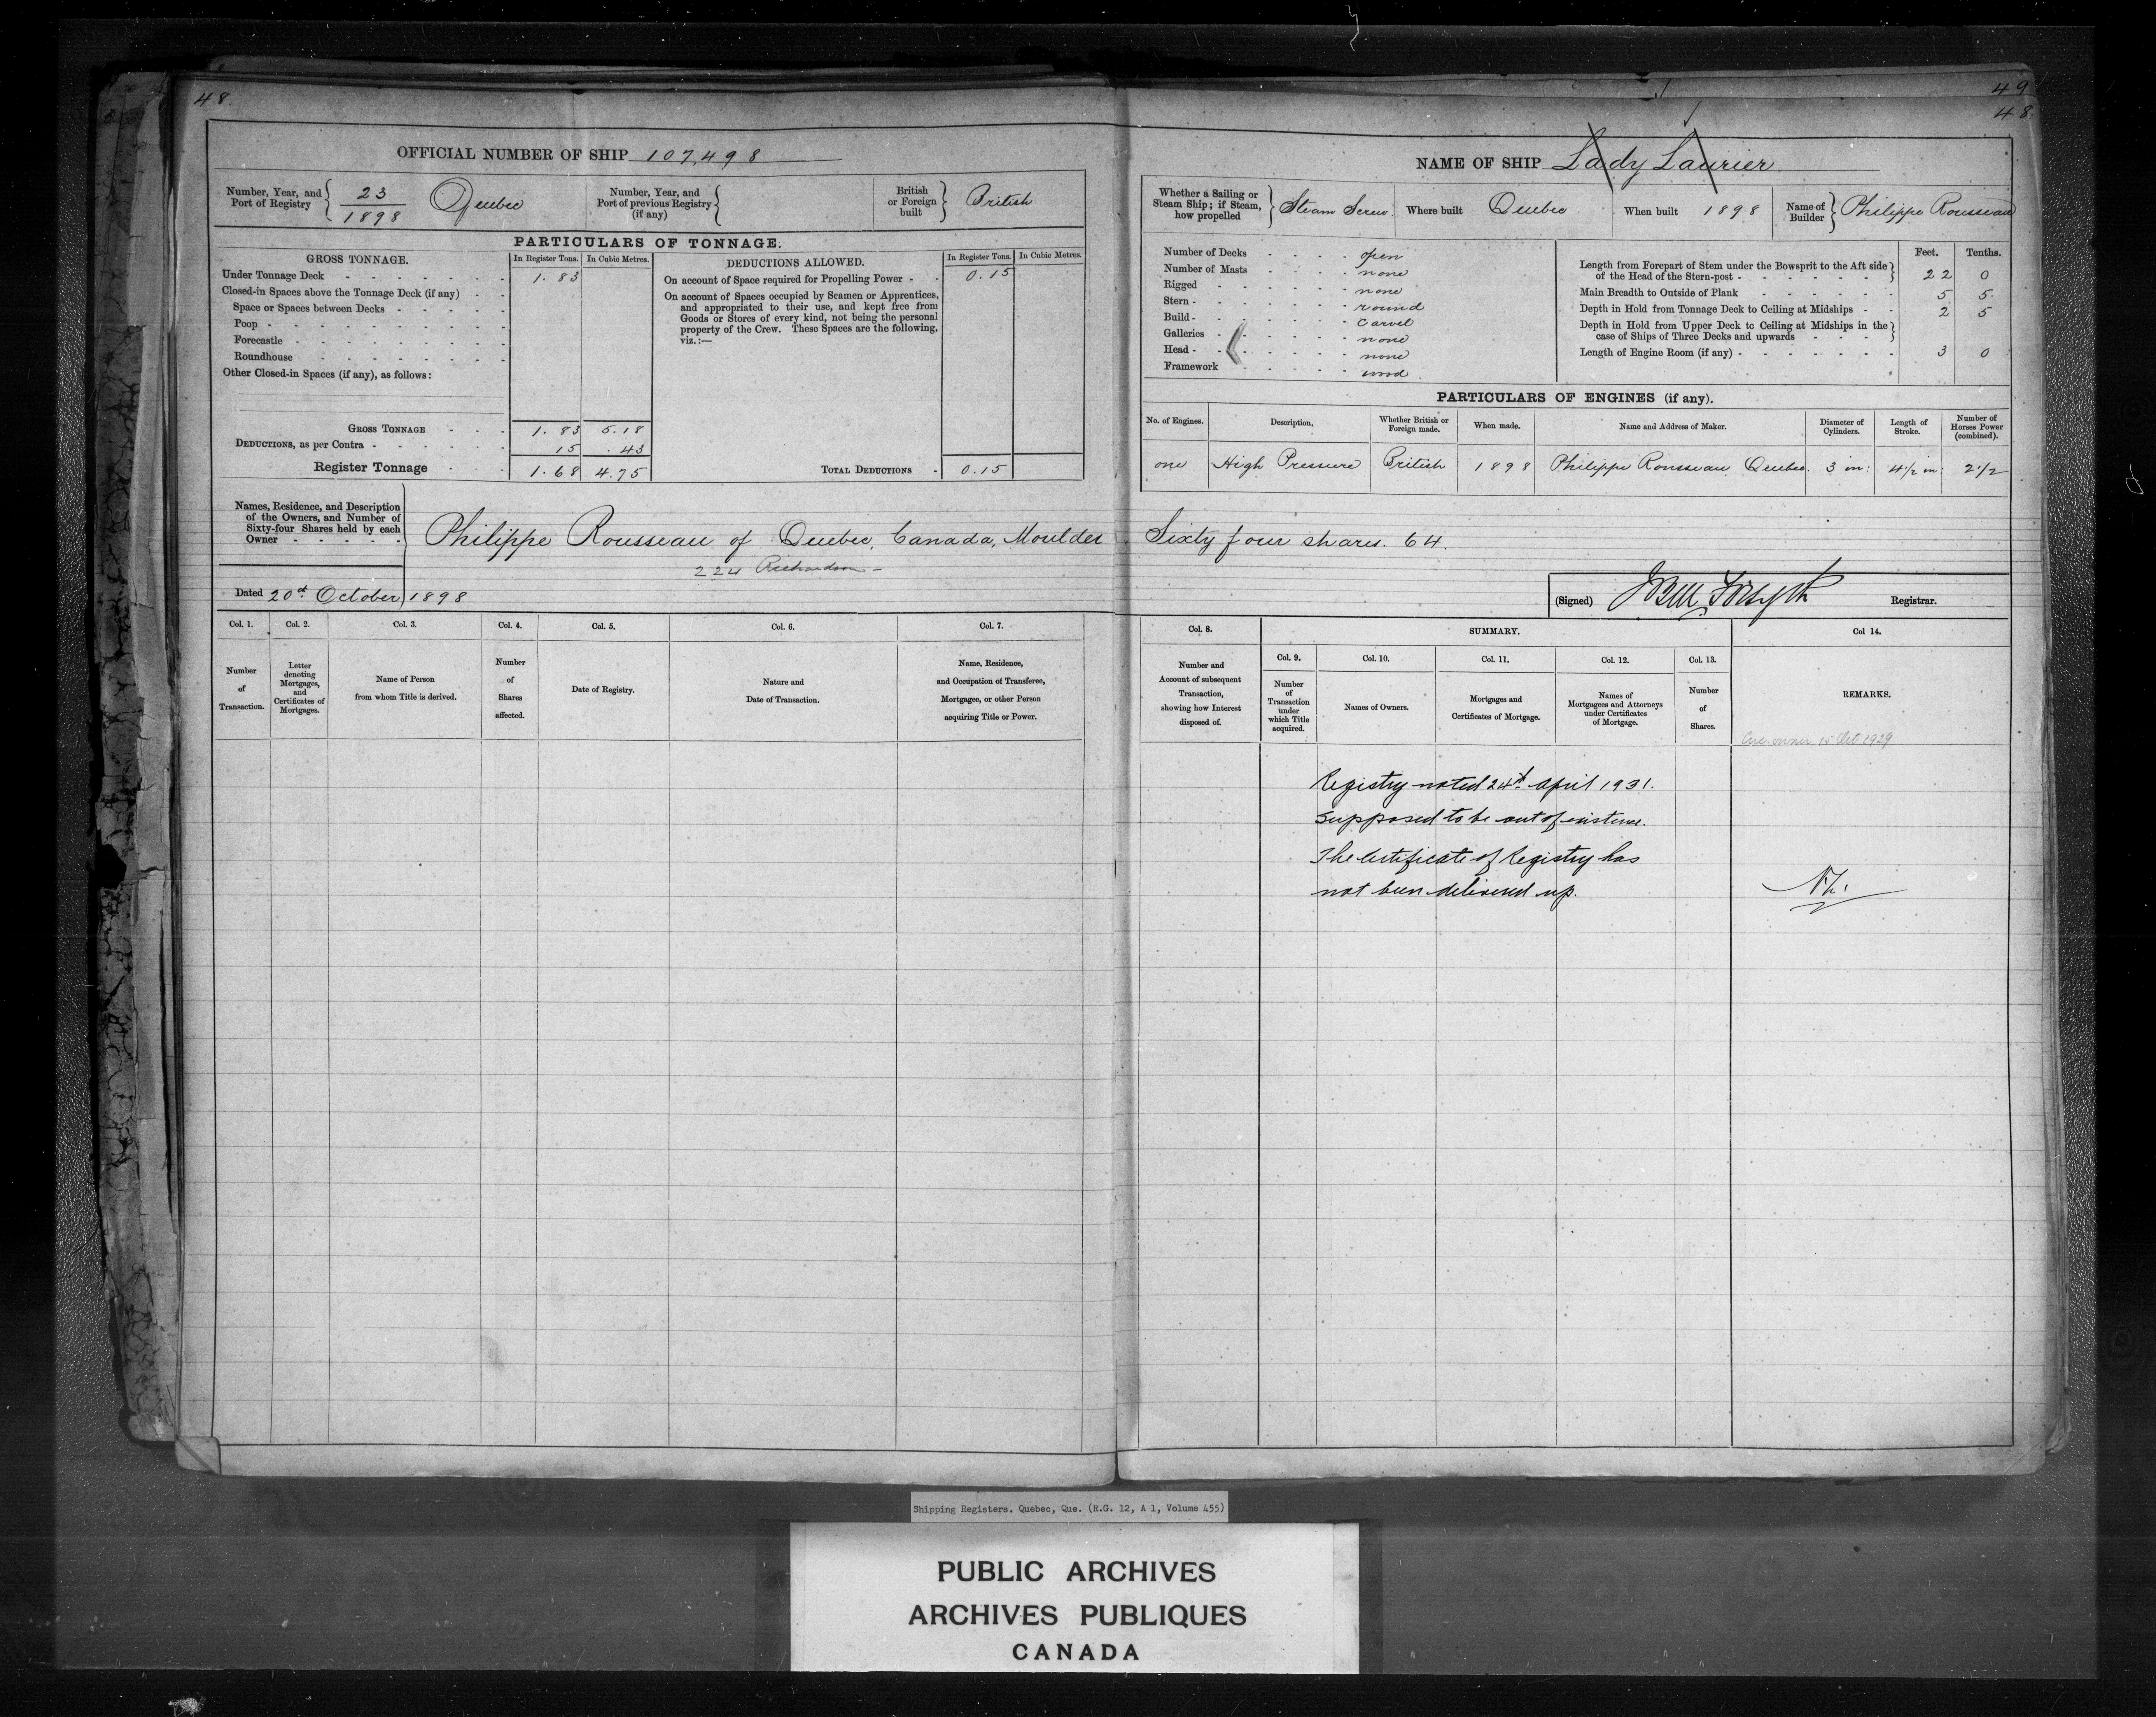 48.
OFFICIAL NUMBER OF SHIP 107,498
Number, Year, and Port of Registry { 23 / 1898 Quebec
Number, Year, and Port of previous Registry (if any) {
British or Foreign built } British
PARTICULARS OF TONNAGE.
GROSS TONNAGE. In Register Tons. In Cubic Metres.
Under Tonnage Deck 1.83
Closed-in Spaces above the Tonnage Deck (if any)
Space or Spaces between Decks
Poop
Forecastle
Roundhouse
Other Closed-in Spaces (if any), as follows:
GROSS TONNAGE 1.83 5.18
DEDUCTIONS, as per Contra 15 .43
Register Tonnage 1.68 4.75
DEDUCTIONS ALLOWED. In Register Tons. In Cubic Metres.
On account of Space required for Propelling Power 0.15
On account of Spaces occupied by Seamen or Apprentices,
and appropriated to their use, and kept free from
Goods or Stores of every kind, not being the personal
property of the Crew. These Spaces are the following,
viz.:—
TOTAL DEDUCTIONS 0.15
Names, Residence, and Description
of the Owners, and Number of
Sixty-four Shares held by each
Owner
Philippe Rousseau of Quebec, Canada, Moulder
224 Richardson
Dated 20th October 1898
Col. 1. Col. 2. Col. 3. Col. 4. Col. 5. Col. 6. Col. 7.
Number of Transaction.
Letter denoting Mortgages, and Certificates of Mortgages.
Name of Person from whom Title is derived.
Number of Shares affected.
Date of Registry.
Nature and Date of Transaction.
Name, Residence, and Occupation of Transferee, Mortgagee, or other Person acquiring Title or Power.
49
48.
NAME OF SHIP Lady Laurier
Whether a Sailing or Steam Ship; if Steam, how propelled } Steam Screw.
Where built Quebec
When built 1898
Name of Builder } Philippe Rousseau
Number of Decks open
Number of Masts none
Rigged none
Stern round
Build carvel
Galleries none
Head none
Framework wood.
Feet. Tenths.
Length from Forepart of Stem under the Bowsprit to the Aft side of the Head of the Stern-post 22 0
Main Breadth to Outside of Plank 5 5
Depth in Hold from Tonnage Deck to Ceiling at Midships 2 5
Depth in Hold from Upper Deck to Ceiling at Midships in the case of Ships of Three Decks and upwards
Length of Engine Room (if any) 3 0
PARTICULARS OF ENGINES (if any).
No. of Engines. Description. Whether British or Foreign made. When made. Name and Address of Maker. Diameter of Cylinders. Length of Stroke. Number of Horses Power (combined).
one High Pressure British 1898 Philippe Rousseau Quebec. 3 in: 4½ in: 2½
Sixty four shares. 64.
(Signed) Forsyth Registrar.
Col. 8. SUMMARY. Col 14.
Col. 9. Col. 10. Col. 11. Col. 12. Col. 13.
Number and Account of subsequent Transaction, showing how Interest disposed of.
Number of Transaction under which Title acquired.
Names of Owners.
Mortgages and Certificates of Mortgage.
Names of Mortgagees and Attorneys under Certificates of Mortgage.
Number of Shares.
REMARKS.
owner 15 Oct 1929
Registry noted 24th April 1931.
Supposed to be out of existence.
The Certificate of Registry has
not been delivered up.
Shipping Registers. Quebec, Que. (R.G. 12, A 1, Volume 455)
PUBLIC ARCHIVES
ARCHIVES PUBLIQUES
CANADA